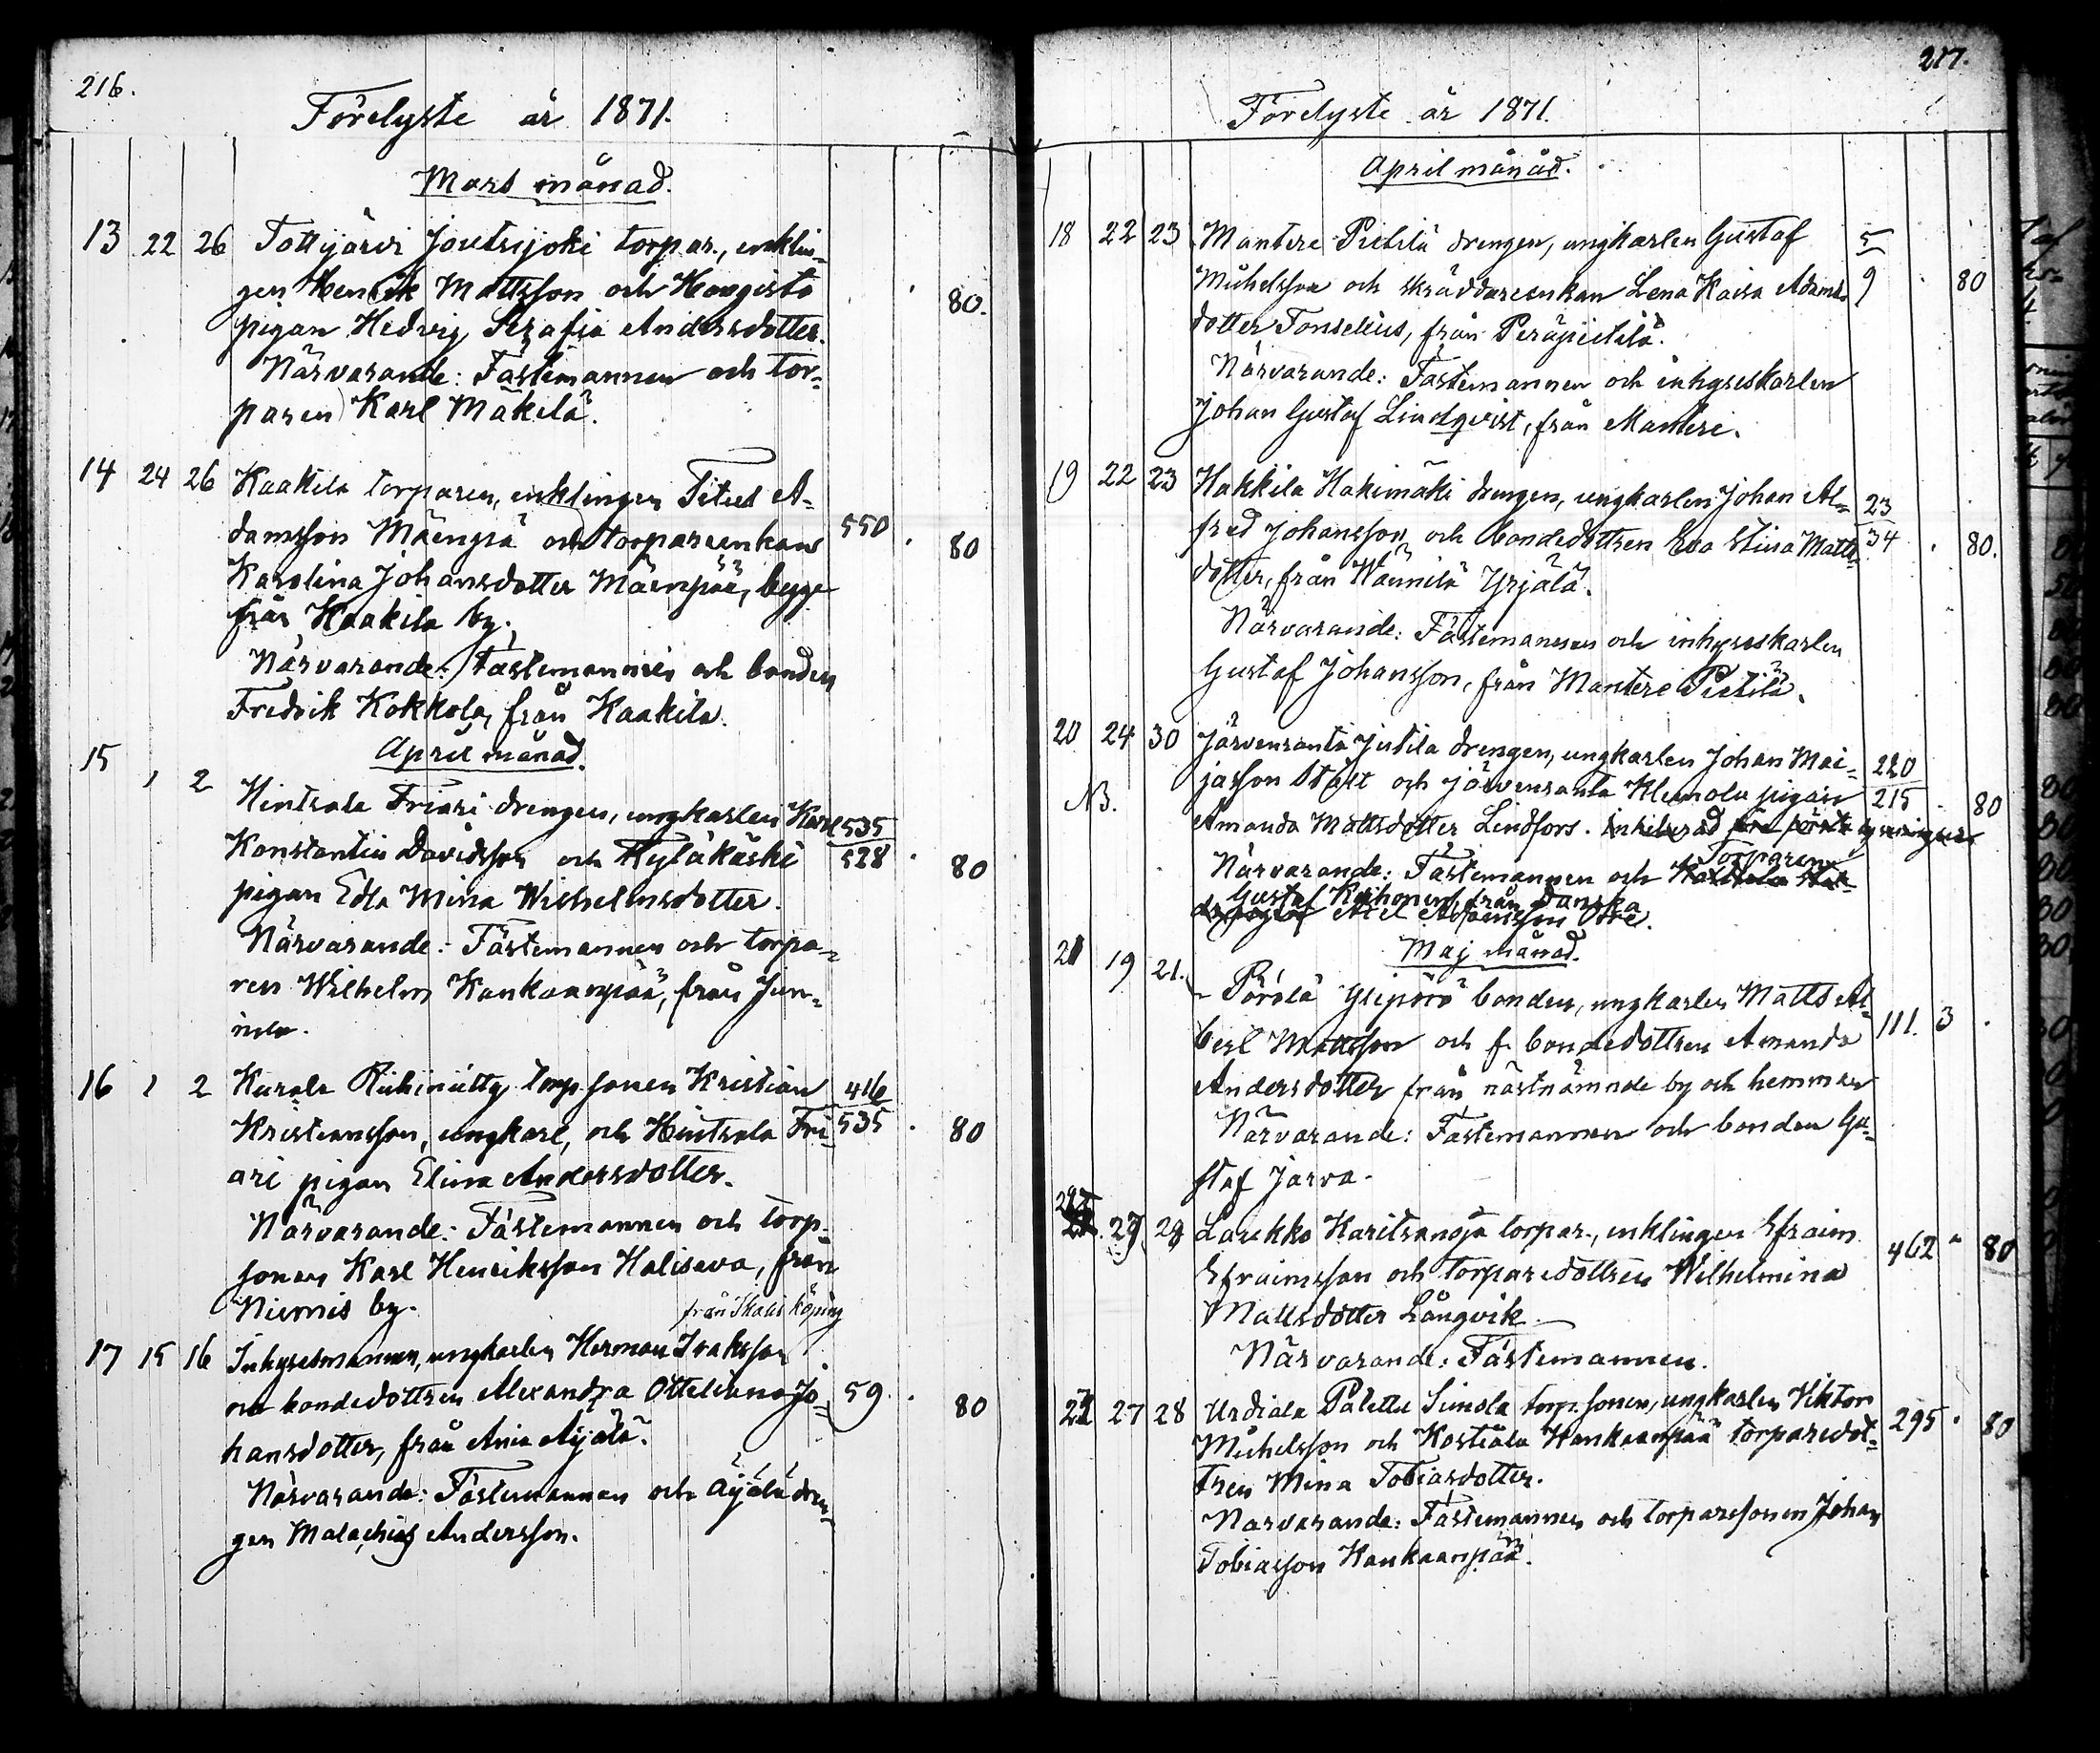 216.
Förelyste år 1871.
Mars månad.
13 22 26 Tottijärvi Joutsijoki torpar., enklin-
gen Henrik Mattsson och Hongisto
pigan Hedvig Serafia Andersdotter. 80.
Närvarande: Fästemannen och tor-
paren Karl Mäkelä.
14 24 26 Kaakila torparen, enklingen Titus A-
damsson Mäenpää och torpareenkan 550 80
Karolina Johansdotter Mäenpää, begge
från Kaakila by.
Närvarande: Fästemannen och bonden
Fredrik Kokkola, från Kaakila.
April månad.
15 1 2 Hintsala Friari drengen, ungkarlen Karl 535
Konstantin Davidsson och Hyläkäski 528 80
pigan Edla Mina Wilhelmsdotter.
Närvarande: Fästemannen och torpa-
ren Wilhelm Kankaanpää, från Jun-
nila.
16 1 2 Kurala Riihiniitty torp.sonen Kristian 416
Kristiansson, ungkarl, och Hintsala Fri- 535 80
ari pigan Elina Andersdotter.
Närvarande: Fästemannen och torp.
sonen Karl Henriksson Haliseva, från
Niemis by.
från Skalis köping
17 15 16 Inhysesmannen, ungkarlen Herman Isaksson
och bondedottren Alexandra Otteliana Jo- 59 80
hansdotter, från Ania Äijälä.
Närvarande: Fästemannen och Äijälä dren-
gen Malachias Andersson.
217.
Förelyste år 1871.
April månad.
18 22 23 Mantere Pietilä drengen, ungkarlen Gustaf 5
Michelsson och skräddareenkan Lena Kaisa Adams- 9 80
dotter Tonselius, från Peräpietilä.
Närvarande: Fästemannen och inhyseskarlen
Johan Gustaf Lindqvist, från Mantere.
19 22 23 Hakkila Hakimäki drengen, ungkarlen Johan Al- 23
fred Johansson och bondedottren Eva Stina Matts- 34 80.
dotter, från Wännilä Yrjälä.
Närvarande: Fästemannen och inhyseskarlen
Gustaf Johansson, från Mantere Pietilä.
20 24 30 Järvensanta Jutila drengen, ungkarlen Johan Mai- 220
jasson Stålt och Järvensanta Klemola pigan 215 80
NB. Amanda Mattsdotter Lindfors. Inhiberad före första lysningen
Torparen
Närvarande: Fästemannen och
Gustaf Keihonen, från Danska
Maj månad.
21 19 21. Pörölä Ylipörö bonden, ungkarlen Matts Al-
bert Mattsson och f. bondedottren Amanda 111. 3
Andersdotter från nästnämnde by och hemman
Närvarande: Fästemannen och bonden Gu-
staf Jarva.
22 27 28 Laukko Karitsanoja torpar., enklingen Efraim
Efraimsson och torparedottren Wilhelmina 462 80
Mattsdotter Långvik.
Närvarande: Fästemannen.
23 27 28 Urdiala Palettu Simola torp.sonen, ungkarlen Viktor
Michelsson och Kostiala Kankaanpää torparedot- 295 80
tren Mina Tobiasdotter.
Närvarande: Fästemannen och torparesonen Johan
Tobiasson Kankaanpää.